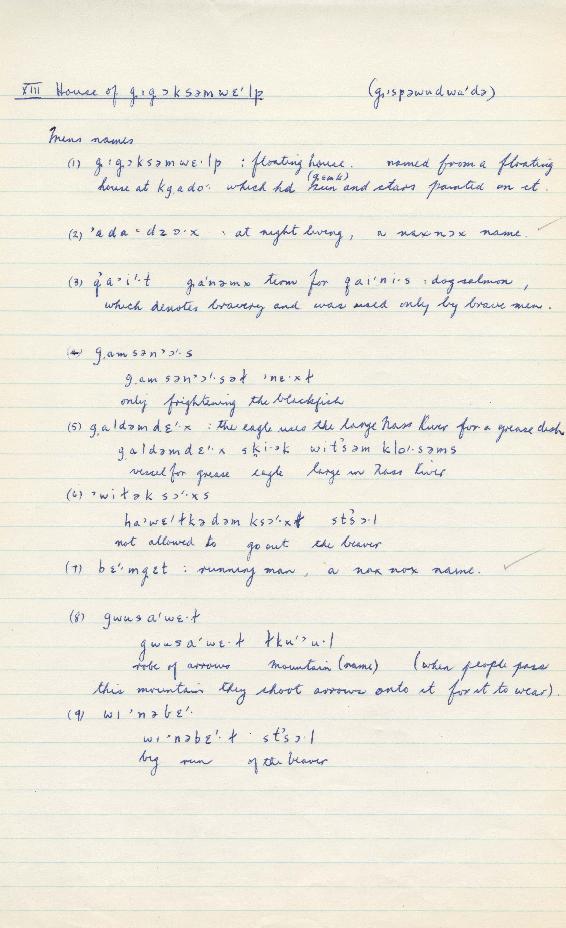 XIII House of g.ıg.ɔksəmwɛ'lp (g.ıspəwudwa'də)
Mens names
(1) g.ıg.ɔksəmwɛ·lp : floating house. named from a floating
house at kgado· which hd sun (g.əmk) and stars painted on it.
(2) 'ada·dzɔ·x : at night living, a naxnɔx name.
(3) g.a'i'·t g.a'nəmx term for qai'ni·s : dogsalmon,
which denotes bravery and was used only by brave men.
(4) g.amsən'ɔ'·s
g.amsən'ɔ'·səɬ 'nɛ·xɬ
only frightening the blackfish
(5) g.aldəmdɛ'·x : the eagle uses the large Nass River for a grease dish
g.aldəmdɛ'·x sk̩i·ək wit'səm klo'·səms
vessel for grease eagle large in Nass River
(6) 'witək sɔ'·xs
ha'wɛ'ɬkədəm ksɔ'·xɬ st'sɔ·l
not allowed to go out the beaver
(7) bɛ'·mget : running man, a nax nox name.
(8) gwusa'wɛ·ɬ
gwusa'wɛ·ɬ ɬku'ɔu·l
robe of arrows mountain (name) (when people pass
this mountain they shoot arrows onto it for it to wear).
(9) wı'nəbɛ'·
wı'nəbɛ'·ɬ st'sɔ·l
big run of the beaver